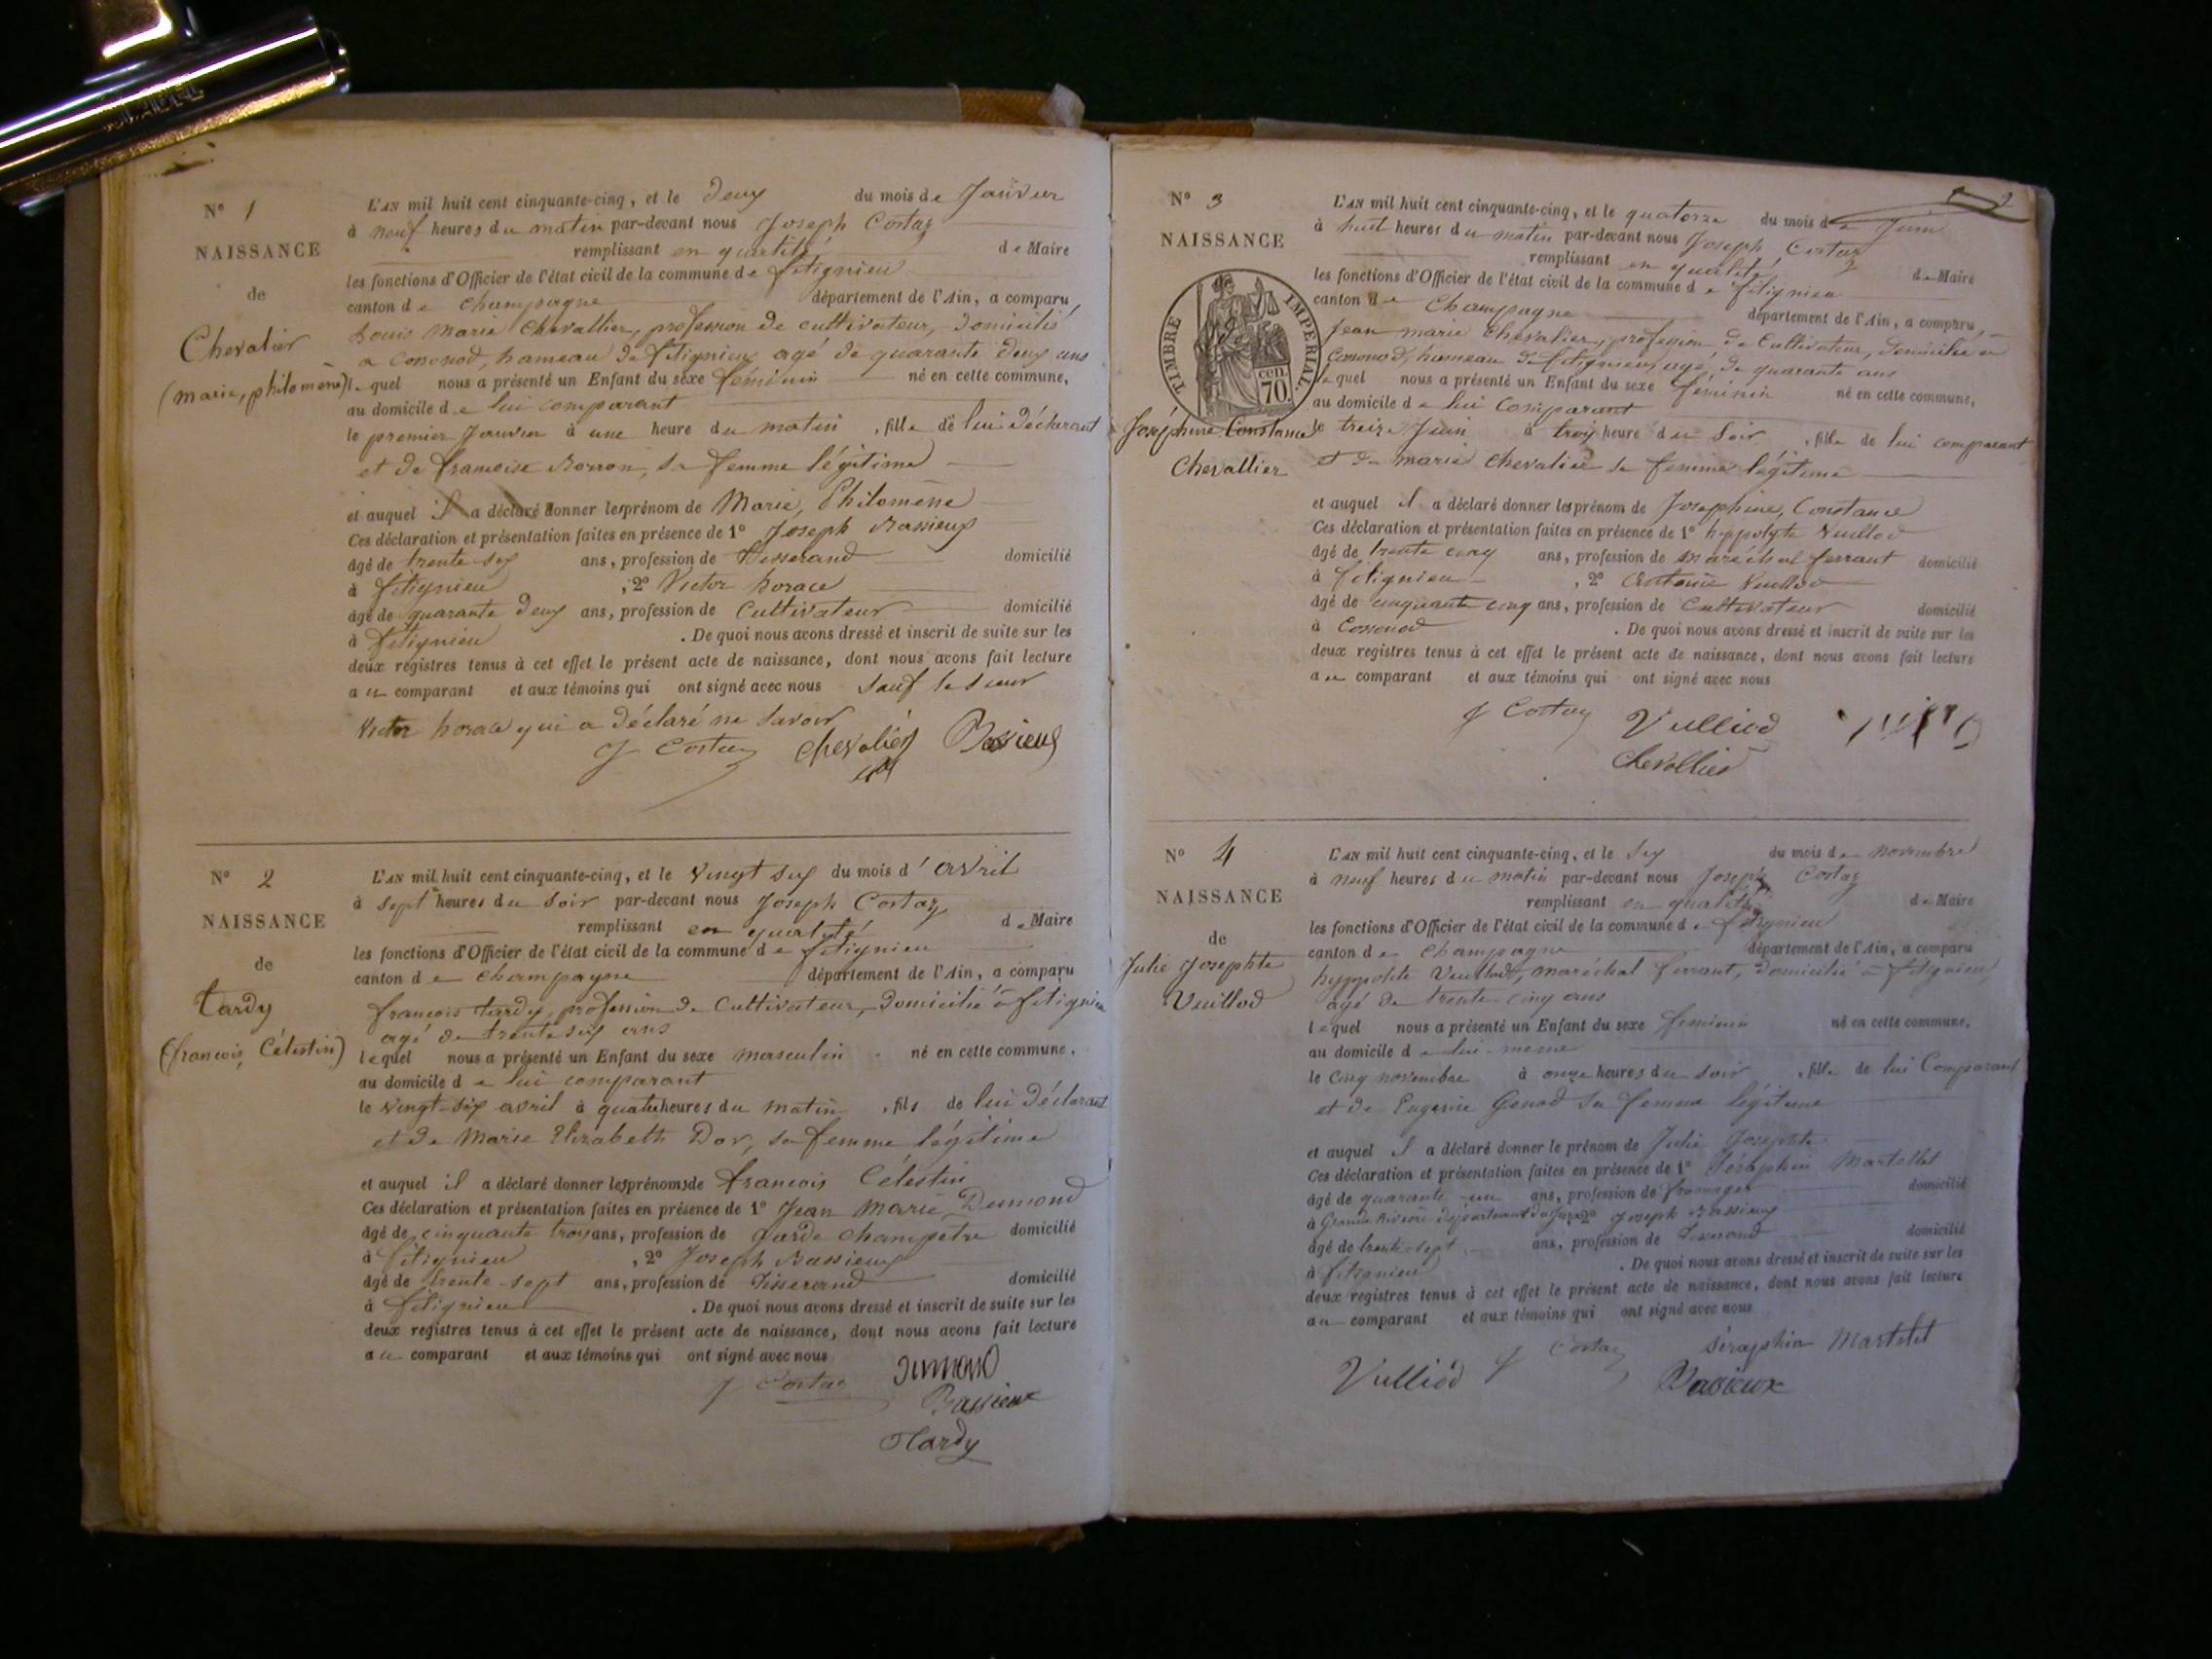 N° 1
NAISSANCE
de
Chevalier
(marie, philomène)
L'AN mil huit cent cinquante-cinq, et le deux du mois de Janvier
à neuf heures du matin par-devant nous Joseph Costaz
remplissant en qualité de Maire
les fonctions d'Officier de l'état civil de la commune de fitignieu
canton de Champagne département de l'Ain, a comparu
Louis Marie Chevallier, profession de cultivateur, domicilié
a Cossonod, hameau de fitignieu agé de quarante deux ans
lequel nous a présenté un Enfant du sexe féminin né en cette commune,
au domicile de lui comparant
le premier Janvier à une heure du matin, fille de lui déclarant
et de francoise, sa femme légitime
et auquel il a déclaré donner les prénom de Marie, Philomène
Ces déclaration et présentation faites en présence de 1° Joseph Bassieux
âgé de trente six ans, profession de Tisserand domicilié
à fitignieu, 2° Victor horace
âgé de quarante deux ans, profession de Cultivateur domicilié
à fitignieu. De quoi nous avons dressé et inscrit de suite sur les
deux registres tenus à cet effet le présent acte de naissance, dont nous avons fait lecture
au comparant et aux témoins qui ont signé avec nous sauf le sieur
Victor horace qui a déclaré ne savoir
J Costaz Chevalier Bassieux
N° 2
NAISSANCE
de
tardy
(francois, Célestin)
L'AN mil huit cent cinquante-cinq, et le vingt six du mois d'avril
à sept heures du soir par-devant nous Joseph Costaz
remplissant en qualité de Maire
les fonctions d'Officier de l'état civil de la commune de fitignieu
canton de Champagne département de l'Ain, a comparu
francois tardy, profession de Cultivateur, domicilié à fitignieu
agé de trente six ans
lequel nous a présenté un Enfant du sexe masculin né en cette commune,
au domicile de lui comparant
le vingt-six avril à quatre heures du matin, fils de lui déclarant
et de Marie Elizabeth Dor, sa femme légitime
et auquel il a déclaré donner les prénoms de francois Célestin
Ces déclaration et présentation faites en présence de 1° Jean Marie Dumond
âgé de cinquante trois ans, profession de Garde champêtre domicilié
à fitignieu, 2° Joseph Bassieux
âgé de trente-sept ans, profession de Tisserand domicilié
à fitignieu. De quoi nous avons dressé et inscrit de suite sur les
deux registres tenus à cet effet le présent acte de naissance, dont nous avons fait lecture
au comparant et aux témoins qui ont signé avec nous
J Costaz Dumond
Bassieux
Tardy
2
N° 3
NAISSANCE
TIMBRE IMPERIAL.
CEN. 70.
Joséphine Constance
Chevallier
L'AN mil huit cent cinquante-cinq, et le quatorze du mois de Juin
à huit heures du matin par-devant nous Joseph Costaz
remplissant en qualité de Maire
les fonctions d'Officier de l'état civil de la commune de fitignieu
canton de Champagne département de l'Ain, a comparu,
Jean marie Chevalier, profession de Cultivateur, domicilié a
Cossonod, hameau de fitignieu, agé de quarante ans
lequel nous a présenté un Enfant du sexe féminin né en cette commune,
au domicile de lui comparant
le treize Juin à trois heure du Soir, fille de lui comparant
et de marie Chevalier sa femme légitime
et auquel il a déclaré donner les prénom de Josephine, Constance
Ces déclaration et présentation faites en présence de 1° hyppolyte Vuillod
âgé de trente cinq ans, profession de maréchal ferrant domicilié
à fitignieu, 2° Antoine Vuillod
âgé de cinquante cinq ans, profession de Cultivateur domicilié
à Cossonod. De quoi nous avons dressé et inscrit de suite sur les
deux registres tenus à cet effet le présent acte de naissance, dont nous avons fait lecture
au comparant et aux témoins qui ont signé avec nous
J Costaz Vulliod
Chevallier
N° 4
NAISSANCE
de
Julie Josephte
Vuillod
L'AN mil huit cent cinquante-cinq, et le six du mois de novembre
à neuf heures du matin par-devant nous Joseph Costaz
remplissant en qualité de Maire
les fonctions d'Officier de l'état civil de la commune de fitignieu
canton de Champagne département de l'Ain, a comparu
hyppolite Vuillod, maréchal ferrant, domicilié à fitignieu,
agé de trente-cinq ans
lequel nous a présenté un Enfant du sexe féminin né en cette commune,
au domicile de lui-meme
le cinq novembre à onze heures du soir, fille de lui Comparant
et de Eugenie Genod sa femme légitime
et auquel il a déclaré donner le prénom de Julie Josephte
Ces déclaration et présentation faites en présence de 1° Séraphin Martelet
âgé de quarante-un ans, profession de fromager domicilié
à Grande Rivière département du Jura 2° Joseph Bassieux
âgé de trente-sept ans, profession de Tisserand domicilié
à fitignieu. De quoi nous avons dressé et inscrit de suite sur les
deux registres tenus à cet effet le présent acte de naissance, dont nous avons fait lecture
au comparant et aux témoins qui ont signé avec nous
Vulliod J Costaz séraphin Martelet
Bassieux